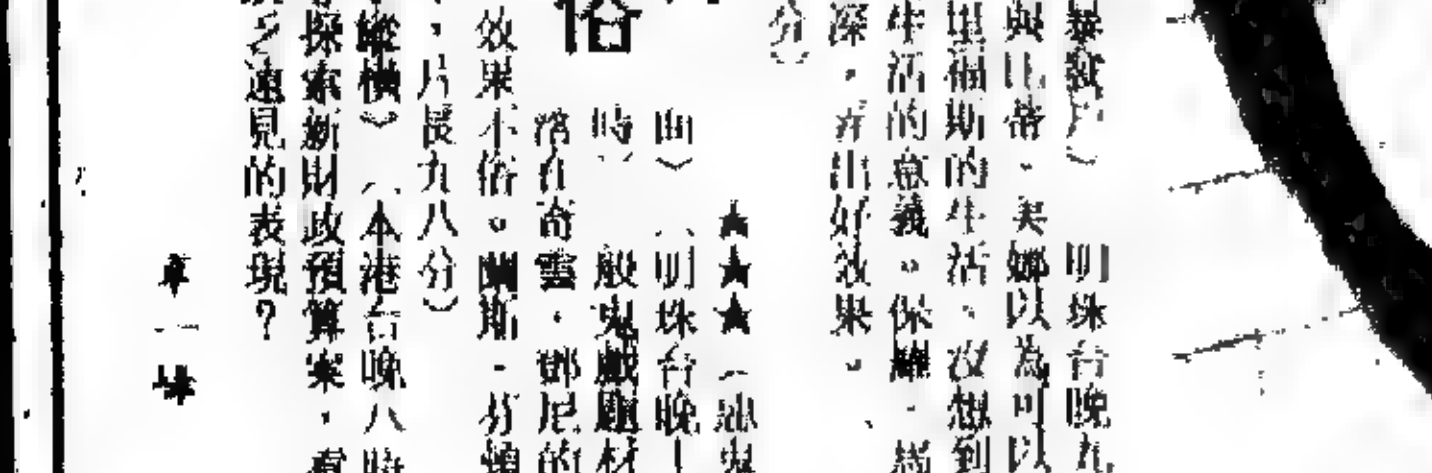 明珠台晚九
與比蒂·美娜以為可以
里福斯的生活、沒想到
生活的意義。保羅·
深,產出好效果。
分)
★★★
曲) (明珠台晚十
時) 一般鬼戲題材
俗
落在奇雲·鄧尼的
效果不俗。蘭斯·芬頓
,片長九八分)
縱橫》(本港台晚八時
探索新財政預算案,看
多遠見的表現?
卓一